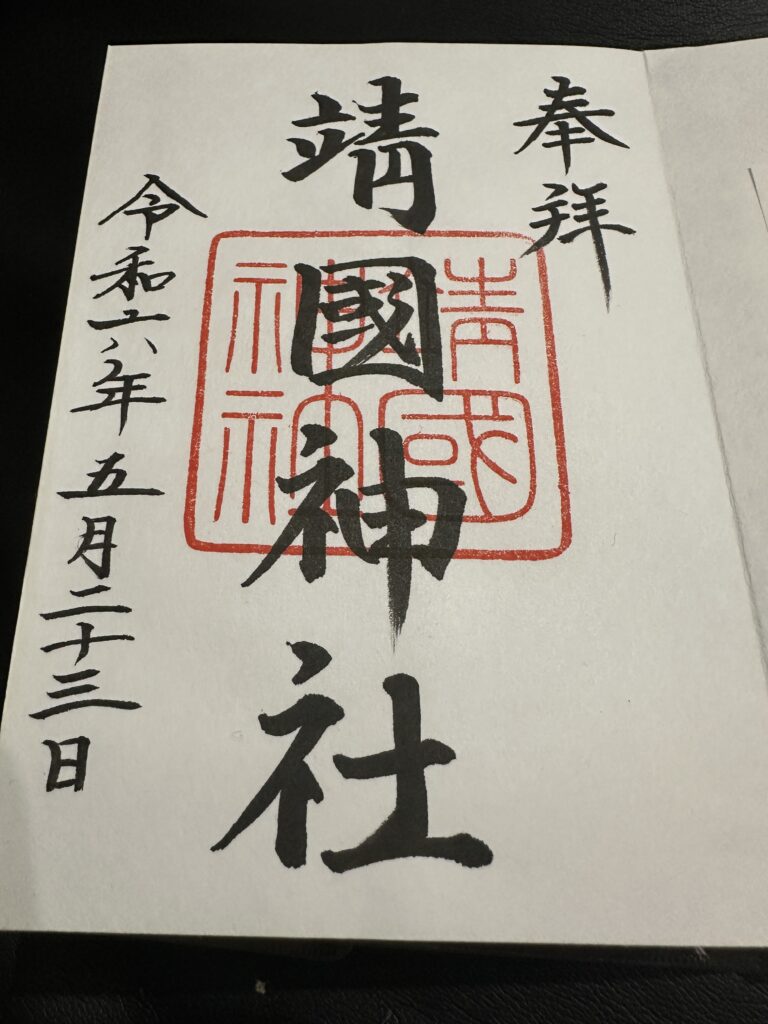 奉拝
靖國神社
靖國神社
令和六年五月二十三日